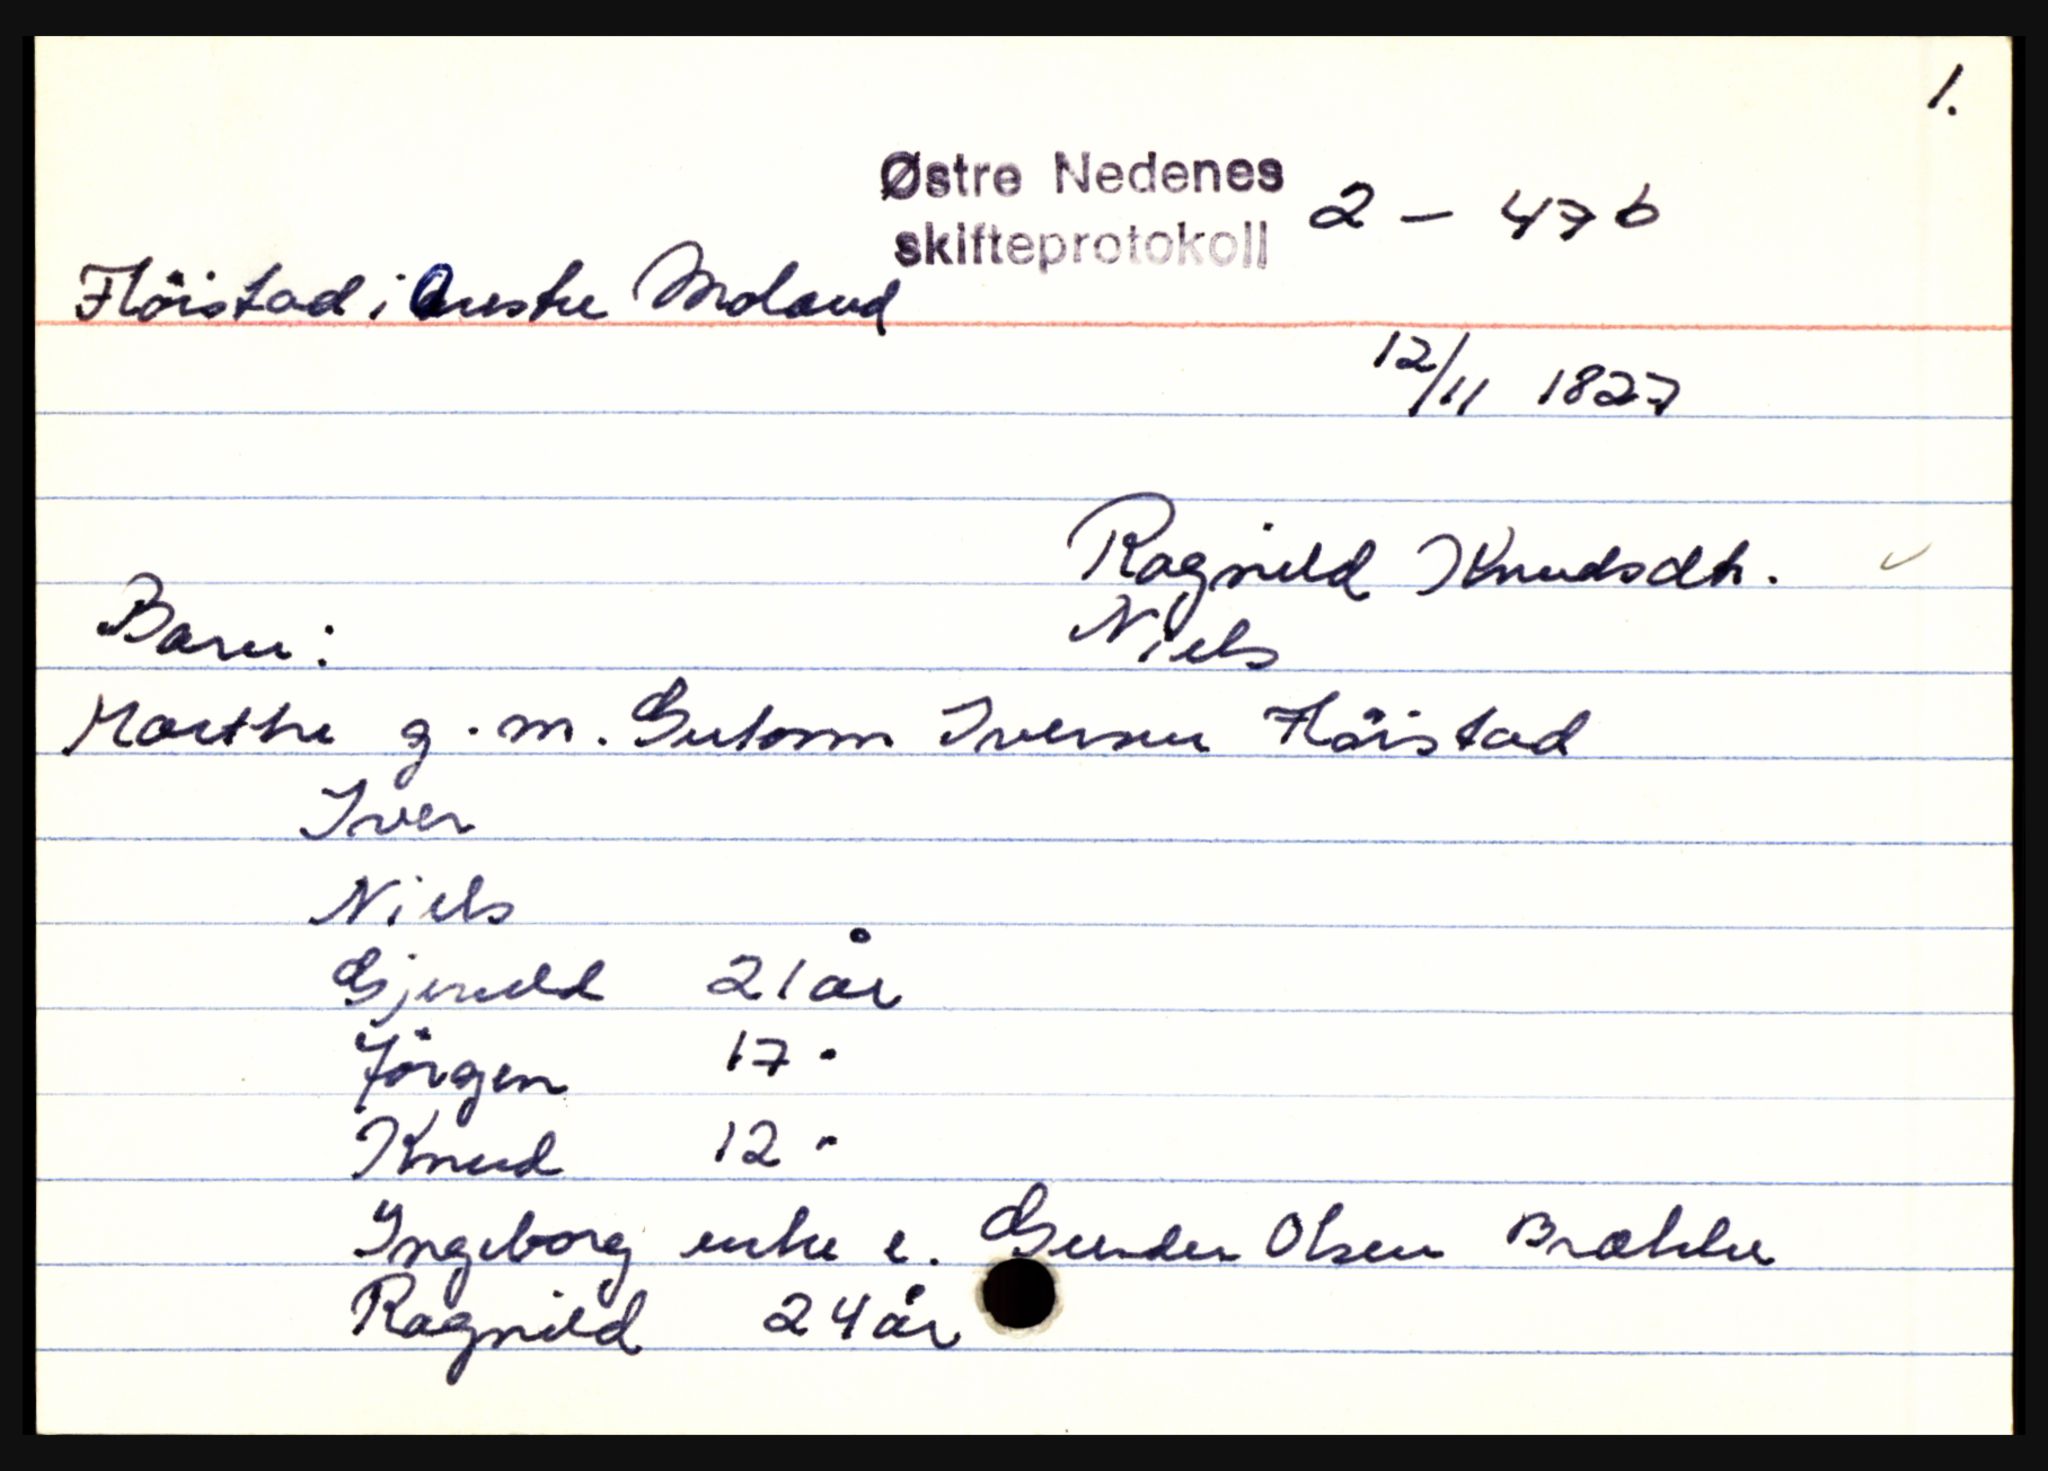 1.
Østre Nedenes
skifteprotokoll 2 – 47 b
Flöistad i Austre Moland
12/11 1827
Ragnild Knudsdtr.
Niels
Barn:
Marthe g.m. Gutorm Iversen Flöistad
Iver
Niels
Gjeruld 21 år
Jörgen 17 "
Knud 12 "
Ingeborg enke e. Gunder Olsen Brække
Ragnild 24 år